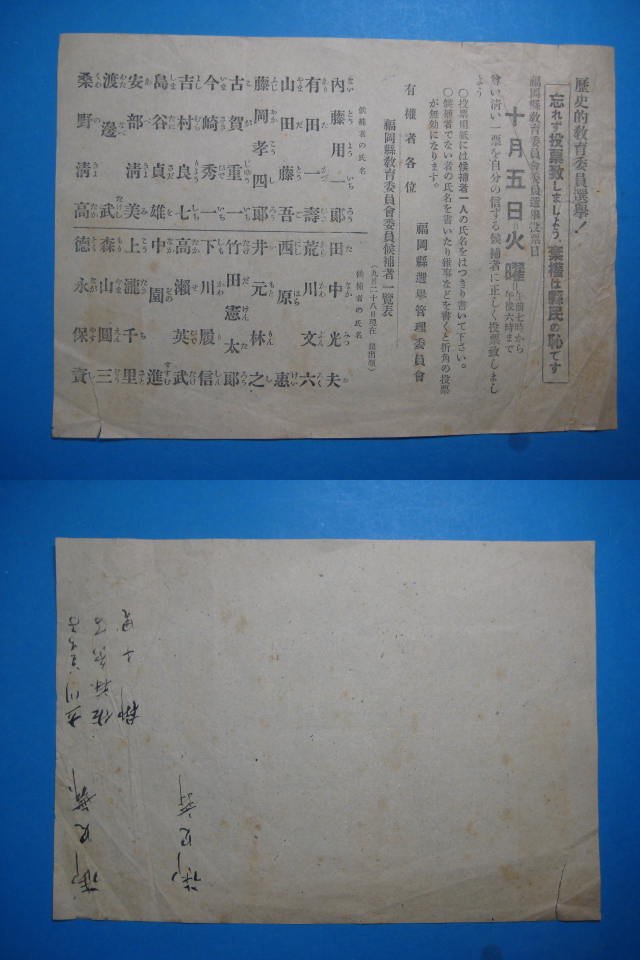 歴史的教育委員選擧!
忘れず投票致しましよう、棄權は縣民の恥です
福岡縣教育委員會委員選擧投票日
十月五日火曜
午前七時から
午後六時まで
尊い淸い一票を自分の信ずる候補者に正しく投票致しまし
よう
○投票用紙には候補者一人の氏名をはつきり書いて下さい。
○候補者でない者の氏名を書いたり雜事などを書くと折角の投票
が無効になります。
福岡縣選擧管理委員會
有權者各位
福岡縣教育委員會委員候補者一覽表
(九月二十八日現在 提出順)
候補者の氏名
候補者の氏名
內藤用一郞
田中光夫
有田一壽
荒川文六
山田藤吾
西原惠
藤岡孝四郞
井元林之
古賀重一
竹田憲太郞
今崎秀一
下川履信
吉村良七
高瀨英武
島谷貞雄
中園進
安部淸美
上瀧千里
渡邊武
森山圓三
桑野淸高
德永保資